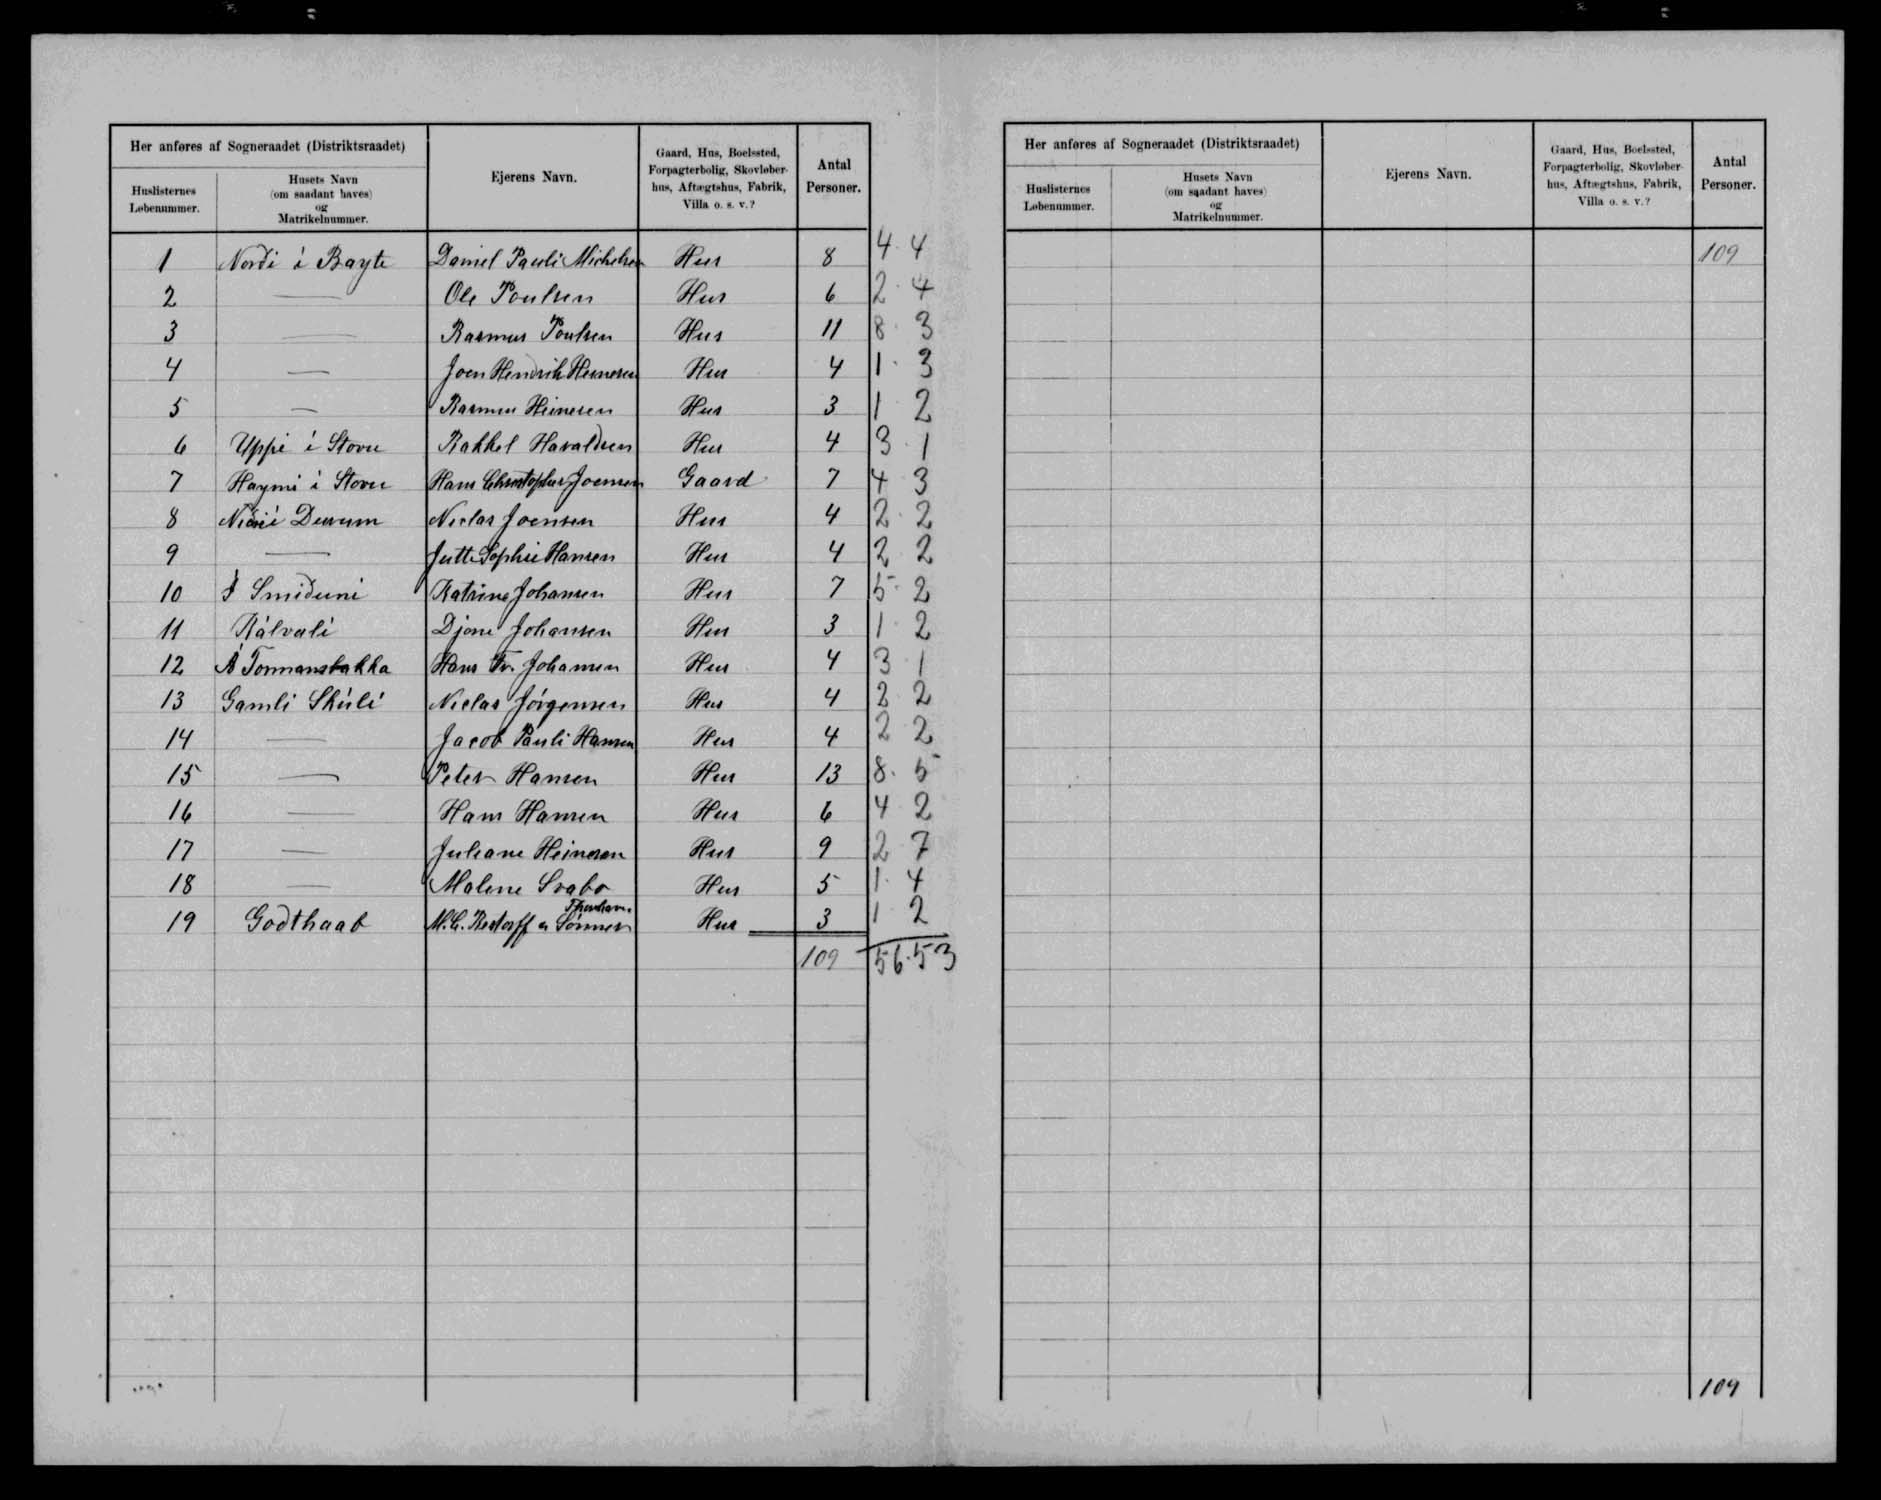 Her anføres af Sogneraadet (Distriktsraadet)
Huslisternes Løbenummer.
Husets Navn (om saadant haves) og Matrikelnummer.
Ejerens Navn.
Gaard, Hus, Boelssted, Forpagterbolig, Skovløberhus, Aftægtshus, Fabrik, Villa o. s. v.?
Antal Personer.
1 Norði i Bayte Daniel Pauli Michelsen Hus 8 4 4
2 — Ole Poulsen Hus 6 2 4
3 — Rasmus Poulsen Hus 11 8 3
4 — Joen Hendrik Heinesen Hus 4 1 3
5 — Rasmus Heinesen Hus 3 1 2
6 Uppi i Stovu Rakkel Havaldsen Hus 4 3 1
7 Haymi i Stovu Hans Christopher Joensen Gaard 7 4 3
8 Niðri í Durum Niclas Joensen Hus 4 2 2
9 — Jutte Sophie Hansen Hus 4 2 2
10 Í Smiðuni Katrine Johansen Hus 7 5 2
11 Kálvali Djóni Johansen Hus 3 1 2
12 Á Tormansbakka Hans Fr. Johansen Hus 4 3 1
13 Gamli Skúli Niclas Jörgensen Hus 4 2 2
14 — Jacob Pauli Hansen Hus 4 2 2
15 — Peter Hansen Hus 13 8 5
16 — Hans Hansen Hus 6 4 2
17 — Juliane Heinesen Hus 9 2 7
18 — Malene Svabo Hus 5 1 4
19 Godthaab M.C. Restorff & Sønner Thorshavn. Hus 3 1 2
109 56 53
Her anføres af Sogneraadet (Distriktsraadet)
Huslisternes Løbenummer.
Husets Navn (om saadant haves) og Matrikelnummer.
Ejerens Navn.
Gaard, Hus, Boelssted, Forpagterbolig, Skovløberhus, Aftægtshus, Fabrik, Villa o. s. v.?
Antal Personer.
109
109